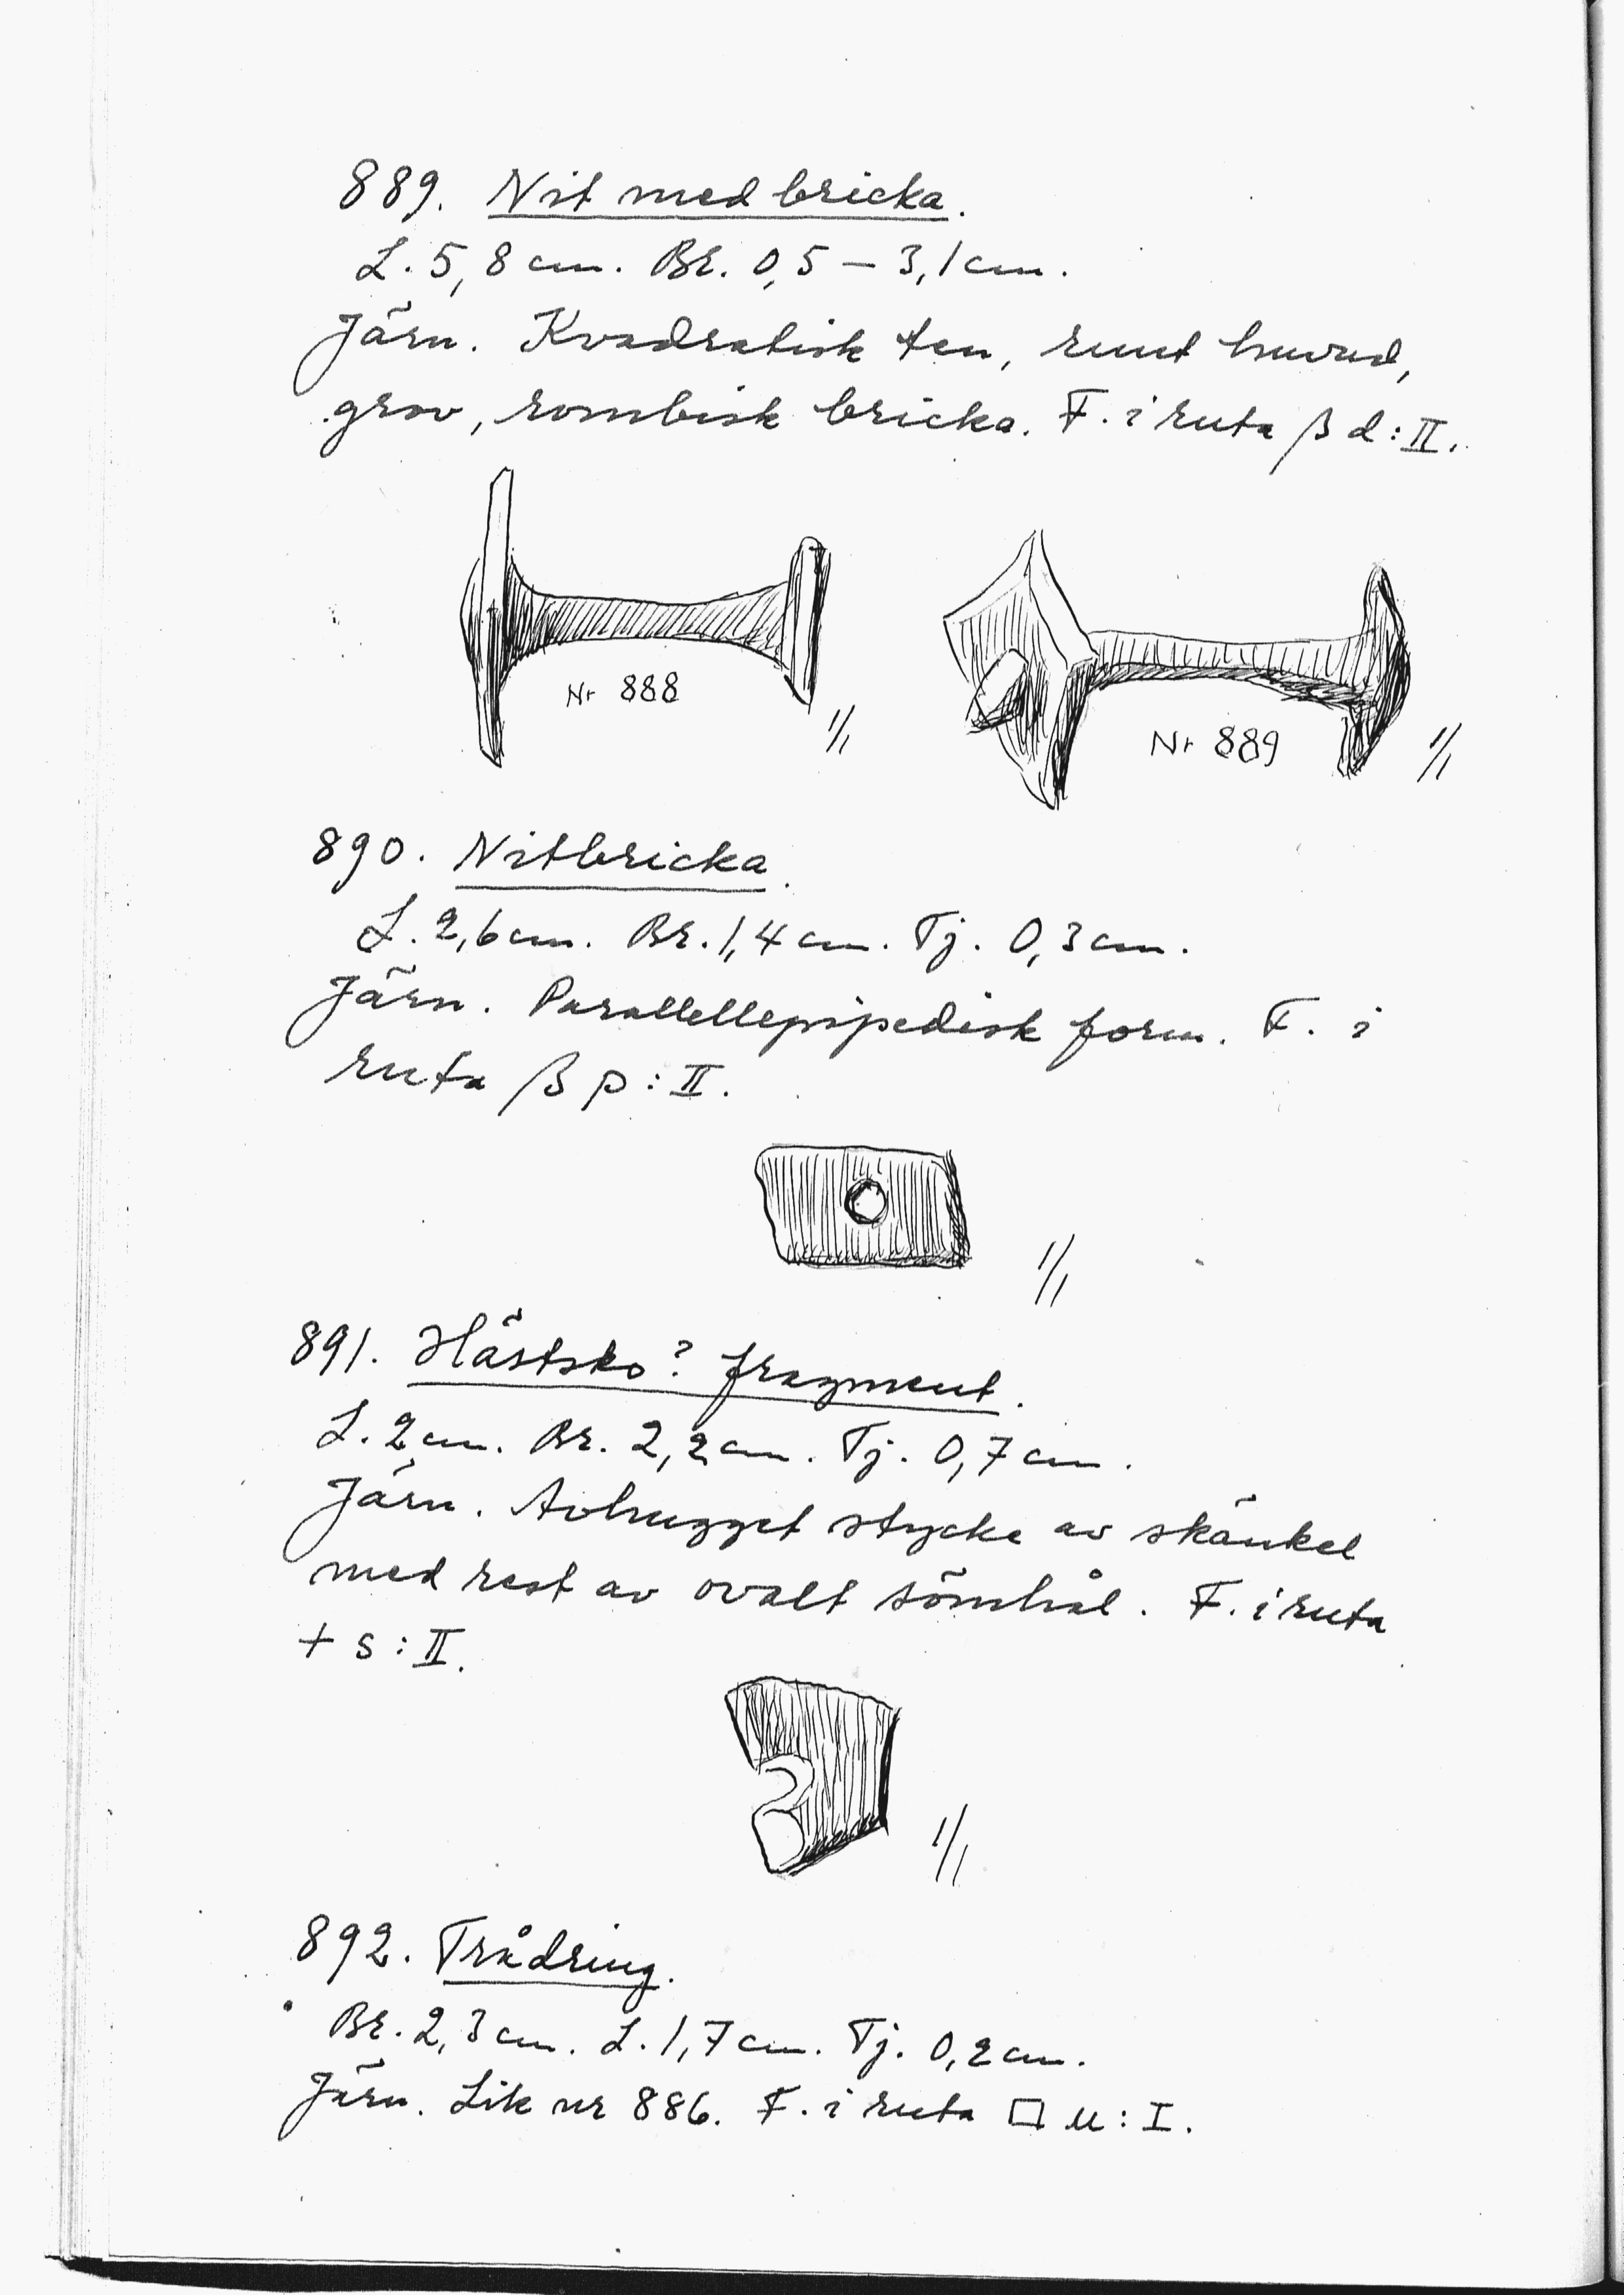 889. Nit med bricka.
L. 5,8 cm. Br. 0,5 – 3,1 cm.
Järn. Kvadratisk ten, runt huvud,
grov, rombisk bricka. F. i ruta β d : II.
Nr 888 1/1
Nr 889 1/1
890. Nitbricka.
L. 2,6 cm. Br. 1,4 cm. Tj. 0,3 cm.
Järn. Parallellepipedisk form. F. i
ruta β p : II.
1/1
891. Hästsko? fragment.
L. 2 cm. Br. 2,2 cm. Tj. 0,7 cm.
Järn. Avhugget stycke av skänkel
med rest av ovalt sömhål. F. i ruta
+ s : II.
1/1
892. Trådring.
Br. 2,3 cm. L. 1,7 cm. Tj. 0,2 cm.
Järn. Lik nr 886. F. i ruta □ u : I.